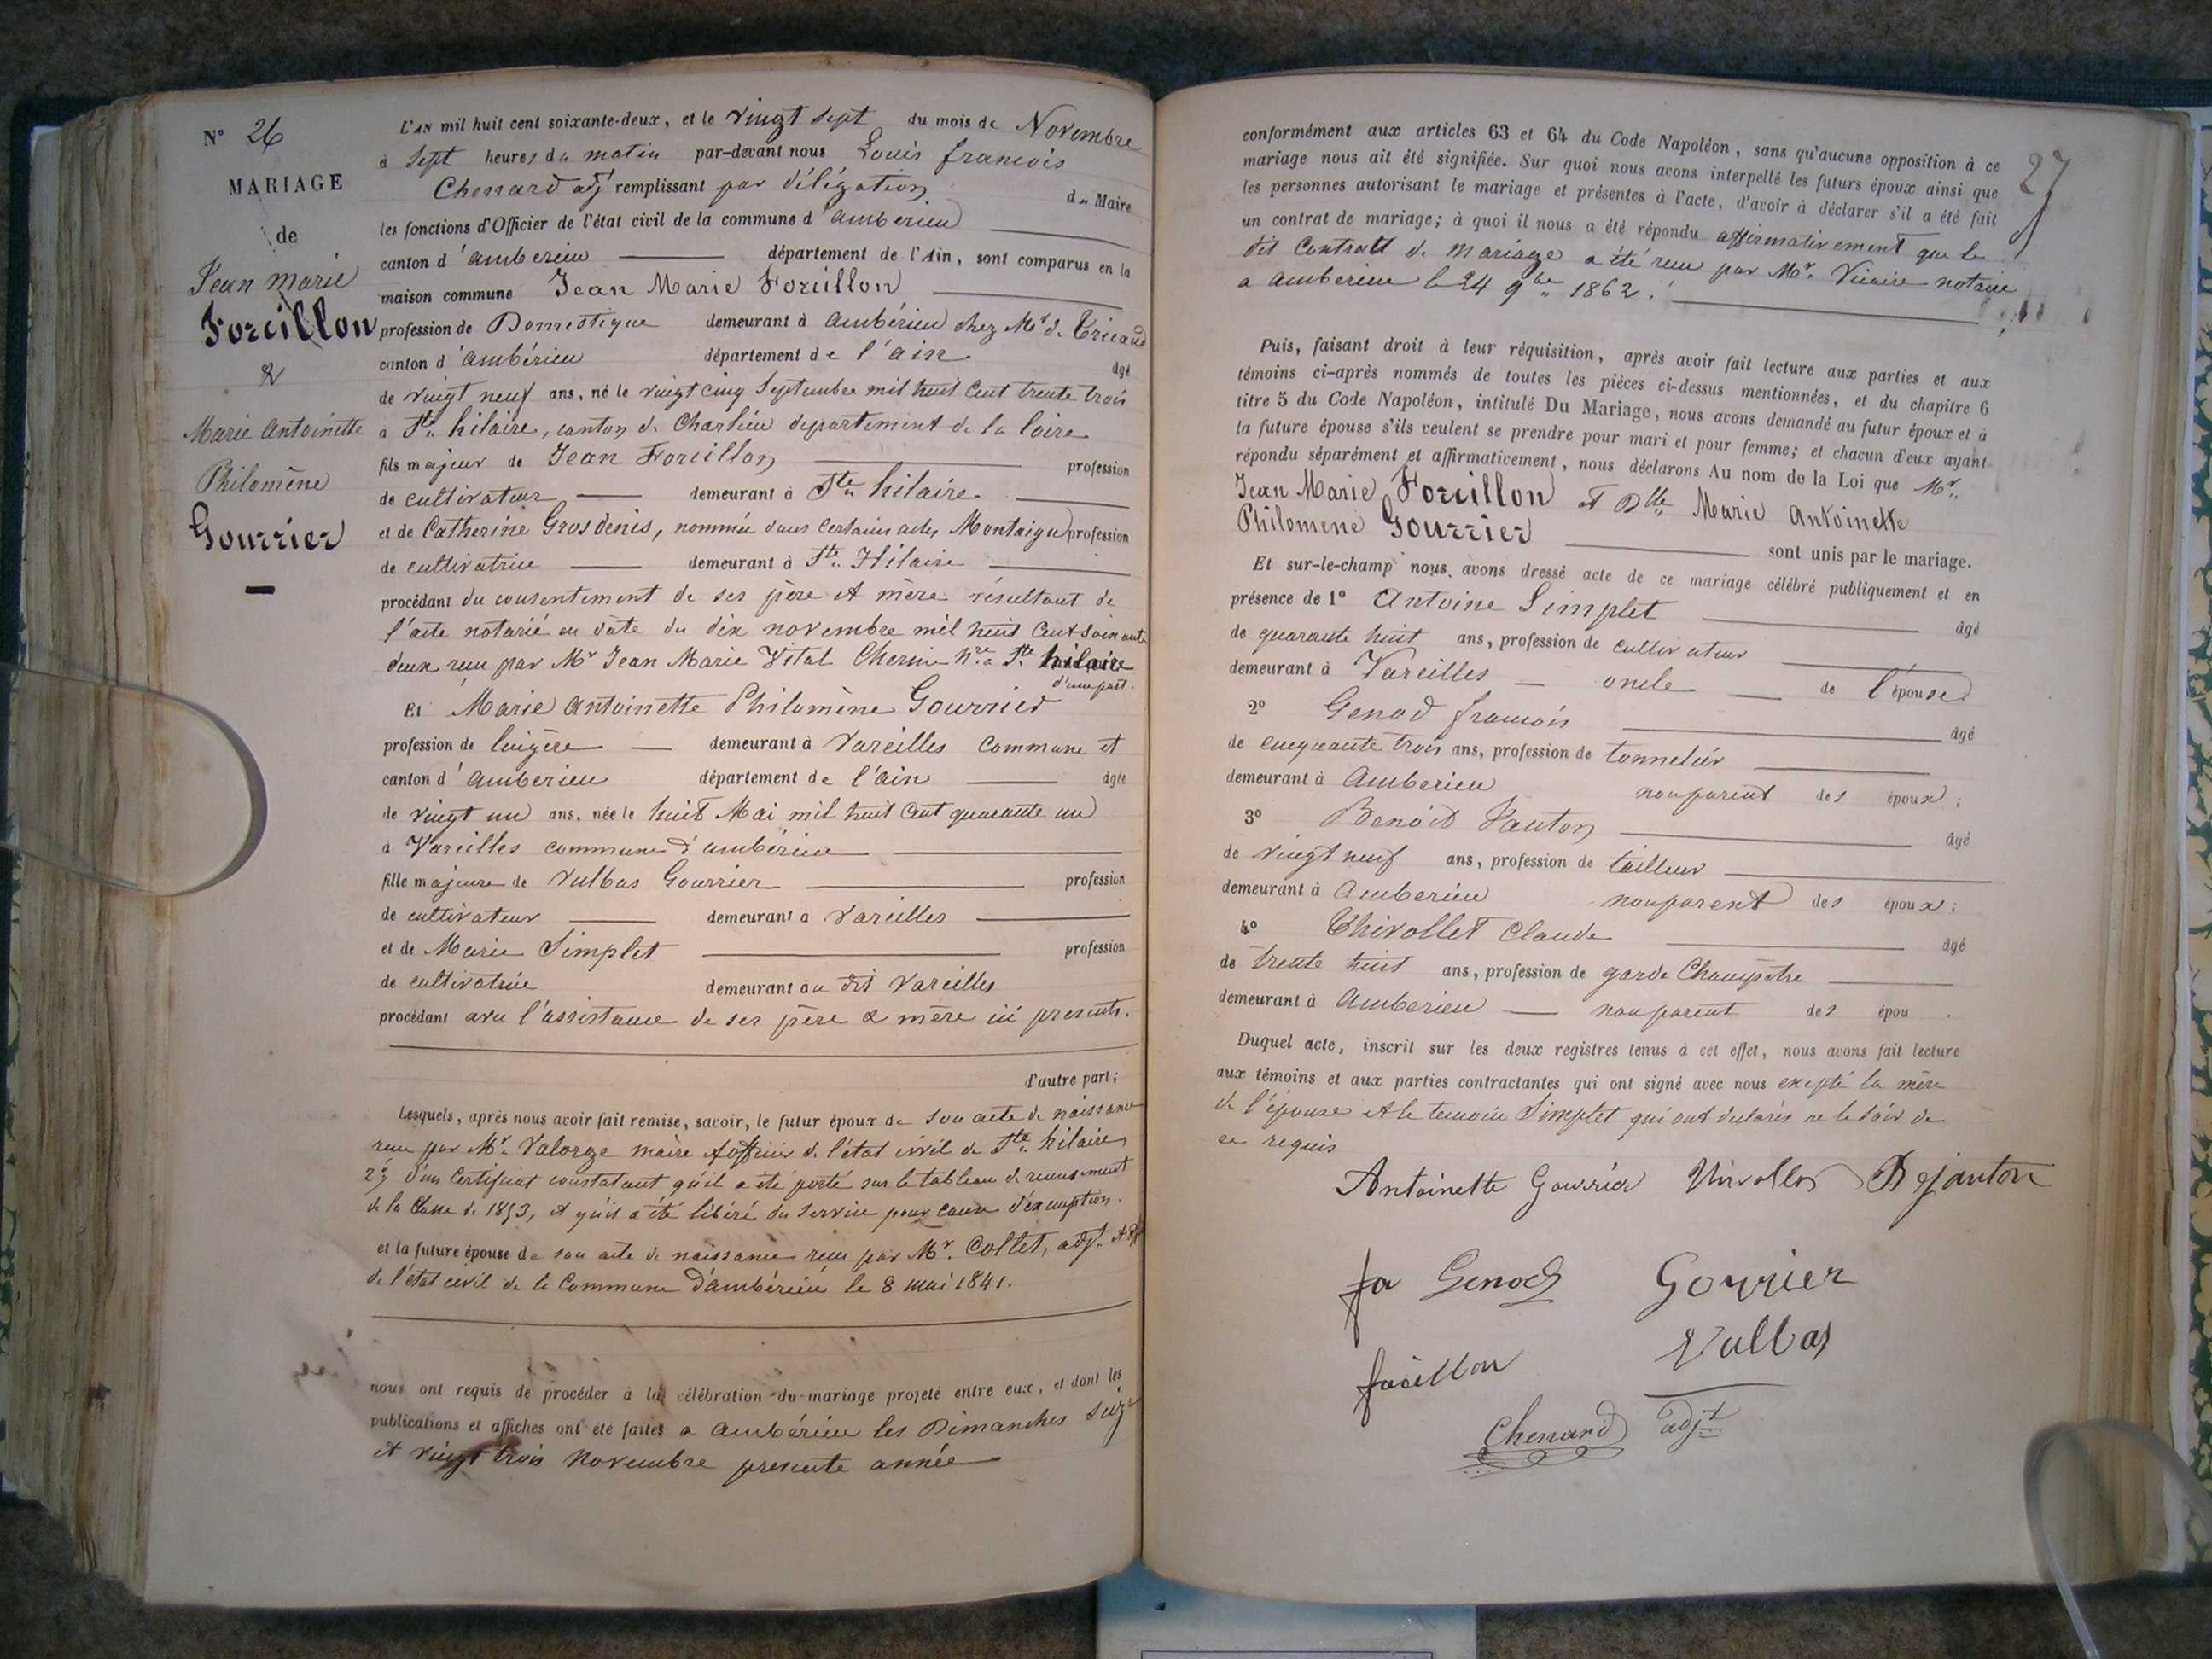 N° 26
MARIAGE
de
Jean Marie
Forcillon
&
Marie Antoinette
Philomène
Gourrier
L'AN mil huit cent soixante-deux, et le vingt sept du mois de Novembre
à sept heures du matin par-devant nous Louis francois
Chenard adjt remplissant par délégation du Maire
les fonctions d'Officier de l'état civil de la commune d'ambérieu
canton d'ambérieu département de l'Ain, sont comparus en la
maison commune Jean Marie Forcillon
profession de Domestique demeurant à ambérieu chez Mr de Tricaud
canton d'ambérieu département de l'ain âgé
de vingt neuf ans, né le vingt cinq Septembre mil huit Cent trente trois
à Ste hilaire, canton de Charlieu departement de la loire
fils majeur de Jean Forcillon profession
de cultivateur demeurant à Ste hilaire
et de Catherine Grosdenis, nommée dans certains actes Montaigu profession
de cultivatrice demeurant à Ste Hilaire
procédant du consentement de ses père et mère résultant de
l'acte notarié en date du dix novembre mil huit Cent soixante
deux reçu par Mr Jean Marie Vital Chervin nre a Ste hilaire
d'une part.
Et Marie Antoinette Philomène Gourrier
profession de lingère demeurant à Vareilles Commune et
canton d'amberieu département de l'ain âgée
de vingt un ans, née le huit Mai mil huit Cent quarante un
à Vareilles commune d'ambérieu
fille majeure de Vulbas Gourrier profession
de cultivateur demeurant à Vareilles
et de Marie Simplet profession
de cultivatrice demeurant au dit Vareilles
procédant avec l'assistance de ses père & mère ici presents.
d'autre part;
Lesquels, après nous avoir fait remise, savoir, le futur époux de son acte de naissance
reçu par Mr Valorge maire & officier de l'état civil de Ste hilaire,
2° d'un Certificat constatant qu'il a été porté sur le tableau de recensement
de la Classe de 1853, et qu'il a été libéré du service pour cause d'exemption.
et la future épouse de son acte de naissance reçu par Mr. Collet, adjt. et off
de l'état civil de la Commune d'ambérieu le 8 mai 1841.
nous ont requis de procéder à la célébration du mariage projeté entre eux, et dont les
publications et affiches ont été faites a ambérieu les Dimanches seize
et vingt trois Novembre presente année
27
conformément aux articles 63 et 64 du Code Napoléon, sans qu'aucune opposition à ce
mariage nous ait été signifiée. Sur quoi nous avons interpellé les futurs époux ainsi que
les personnes autorisant le mariage et présentes à l'acte, d'avoir à déclarer s'il a été fait
un contrat de mariage; à quoi il nous a été répondu affirmativement que le
dit Contratt de mariage a été reçu par Mr. Vicaire notaire
a amberieu le 24 9bre 1862.
Puis, faisant droit à leur réquisition, après avoir fait lecture aux parties et aux
témoins ci-après nommés de toutes les pièces ci-dessus mentionnées, et du chapitre 6
titre 5 du Code Napoléon, intitulé Du Mariage, nous avons demandé au futur époux et à
la future épouse s'ils veulent se prendre pour mari et pour femme; et chacun d'eux ayant
répondu séparément et affirmativement, nous déclarons Au nom de la Loi que Mr.
Jean Marie Forcillon et Dlle Marie Antoinette
Philomene Gourrier sont unis par le mariage.
Et sur-le-champ nous avons dressé acte de ce mariage célébré publiquement et en
présence de 1° Antoine Simplet âgé
de quarante huit ans, profession de cultivateur
demeurant à Vareilles oncle de l'épouse
2° Genod francois âgé
de cinquante trois ans, profession de tonnelier
demeurant à Amberieu non parent des époux;
3° Benoit Janton âgé
de vingt neuf ans, profession de tailleur
demeurant à Amberieu non parent des époux;
4° Thivollet Claude âgé
de trente huit ans, profession de garde Champêtre
demeurant à Amberieu non parent des épou .
Duquel acte, inscrit sur les deux registres tenus à cet effet, nous avons fait lecture
aux témoins et aux parties contractantes qui ont signé avec nous excepté la mère
de l'épouse et le temoin Simplet qui ont déclarés ne le savoir de
ce requis
Antoinette Gourrier Thivollet Bejanton
fr Genod Gourrier
Vulbas
forcillon
Chenard adjt